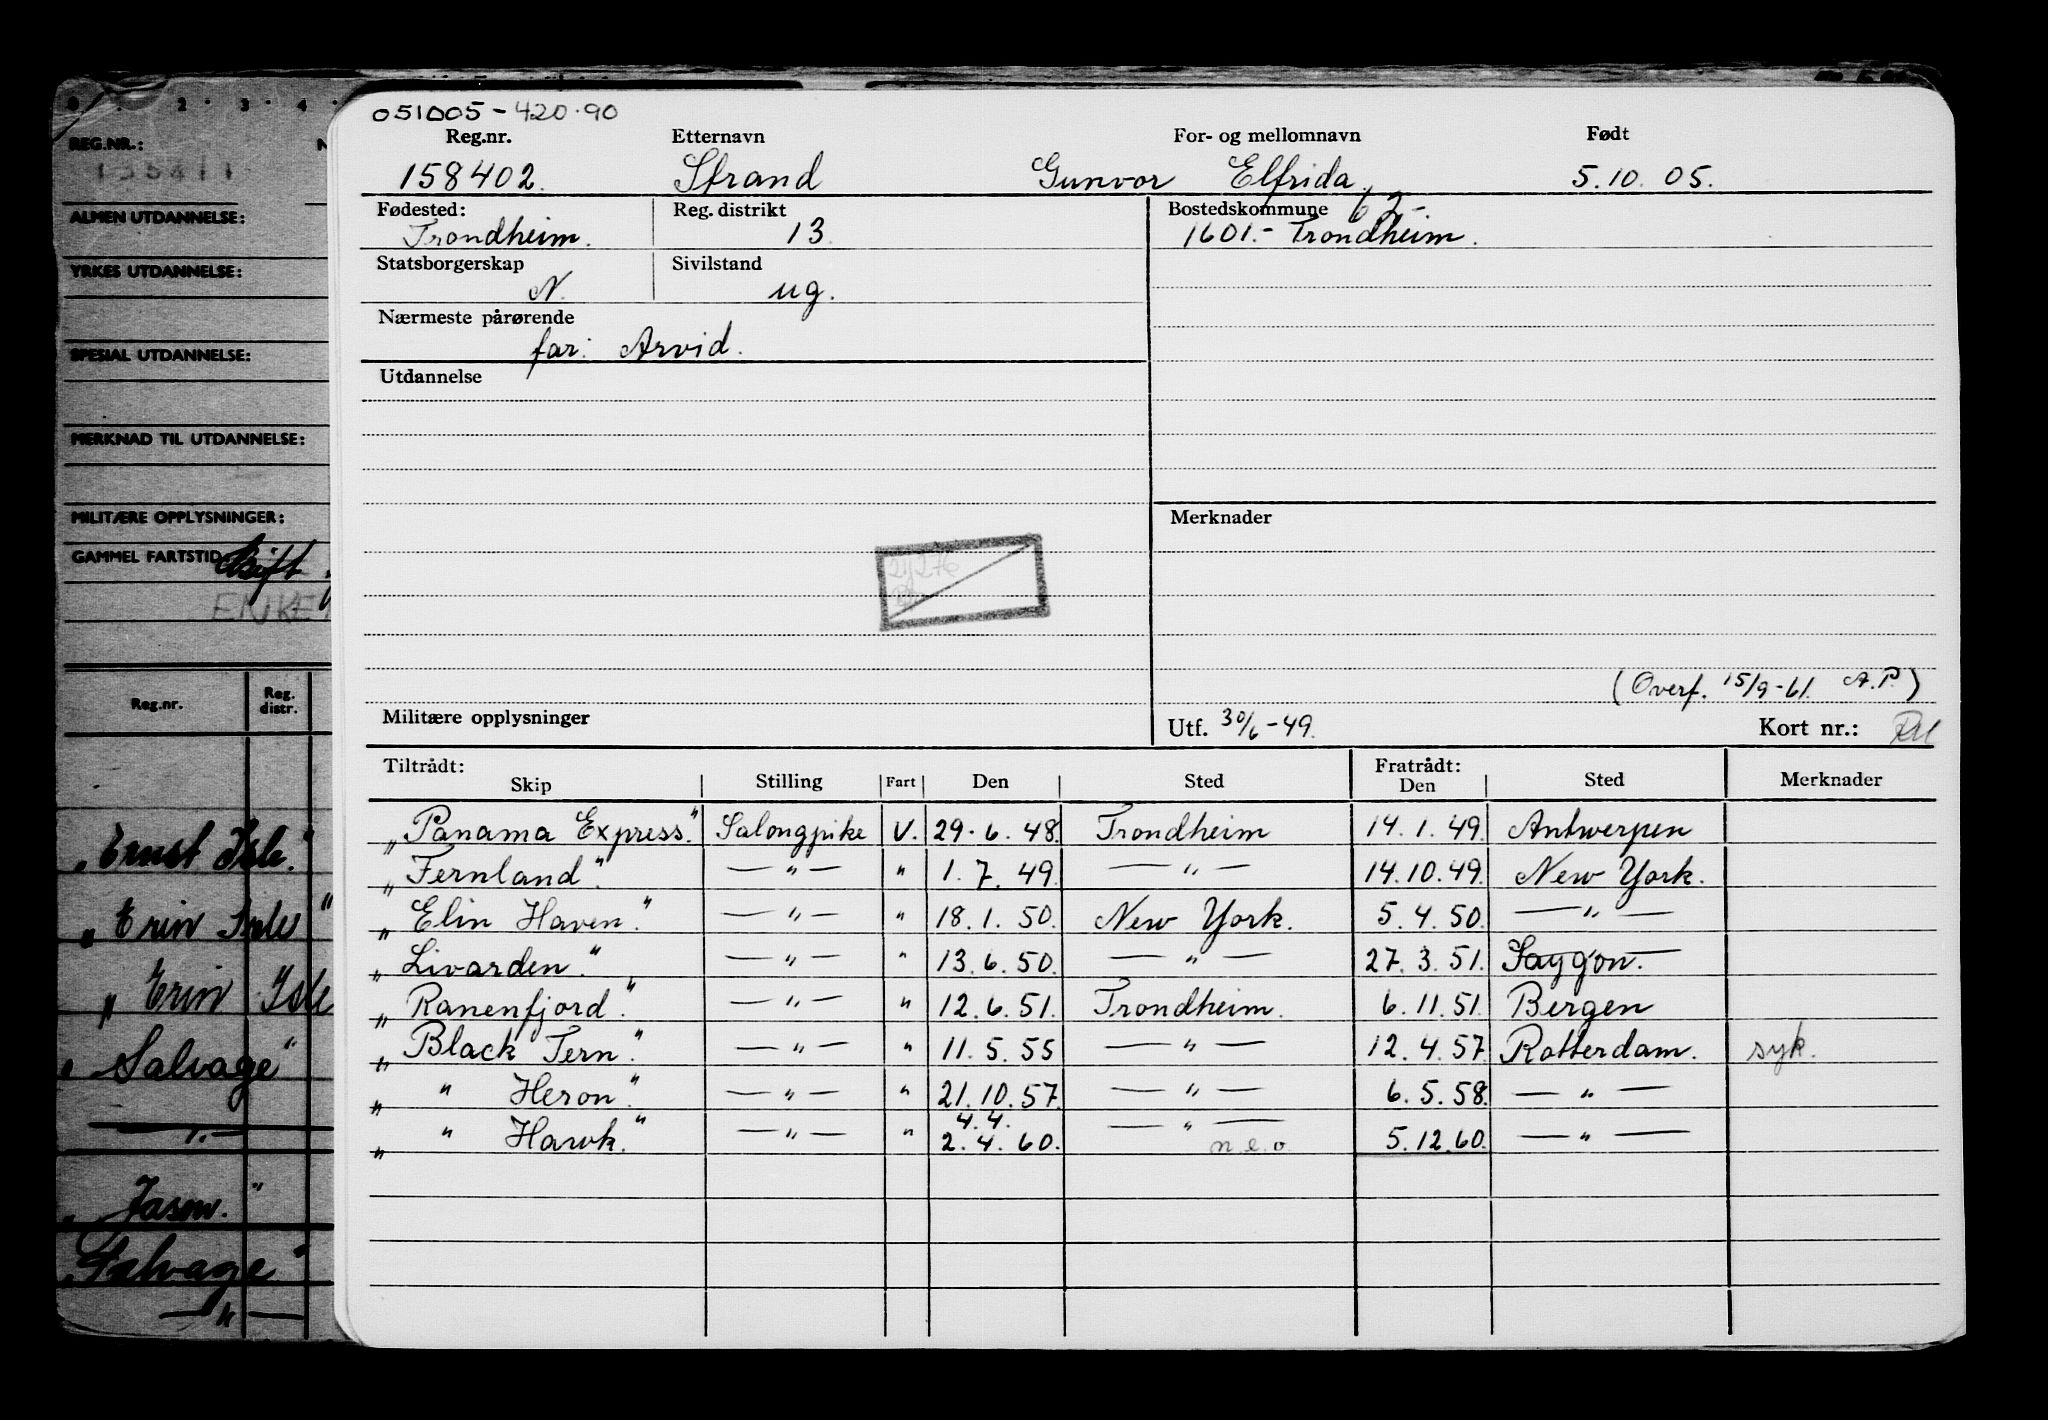 051005-420.90
Reg.nr. Etternavn For- og mellomnavn Født
158402. Strand Gunvor Elfrida, 5.10.05.
Fødested: Reg. distrikt Bostedskommune 62-
Trondheim. 13 1601.- Trondheim.
Statsborgerskap Sivilstand
N. ug.
Nærmeste pårørende
far: Arvid.
Utdannelse
Merknader
(Overf. 15/9-61. A.P.)
Militære opplysninger Utf. 30/6-49. Kort nr.:
Tiltrådt: Fratrådt:
Skip Stilling Fart Den Sted Den Sted Merknader
„Panama Express." Salongpike V. 29.6.48. Trondheim 14.1.49. Antwerpen
„Fernland". —„— " 1.7.49. —„— 14.10.49. New York.
„Elin Haven." —„— " 18.1.50. New York. 5.4.50. —„—
„Livarden." —„— " 13.6.50. —„— 27.3.51. Saygon.
„Ranenfjord." —„— " 12.6.51. Trondheim. 6.11.51. Bergen
„Black Tern." —„— " 11.5.55 —„— 12.4.57. Rotterdam. syk.
„ " Heron." —„— " 21.10.57. —„— 6.5.58. —„—
4.4.
„ " Hawk." —„— " 2.4.60. —„— n.e.o. 5.12.60. —„—
2 3 4
REG.NR.:
ALMEN UTDANNELSE:
YRKES UTDANNELSE:
SPESIAL UTDANNELSE:
MERKNAD TIL UTDANNELSE:
MILITÆRE OPPLYSNINGER:
GAMMEL FARTSTID
Skift
ENKE
Reg.nr. Reg. distr.
„Ernst Isle."
„Erin Isle"
„Erin Isle
„Salvage"
—„—
„Jason."
„Salvage"
—„—